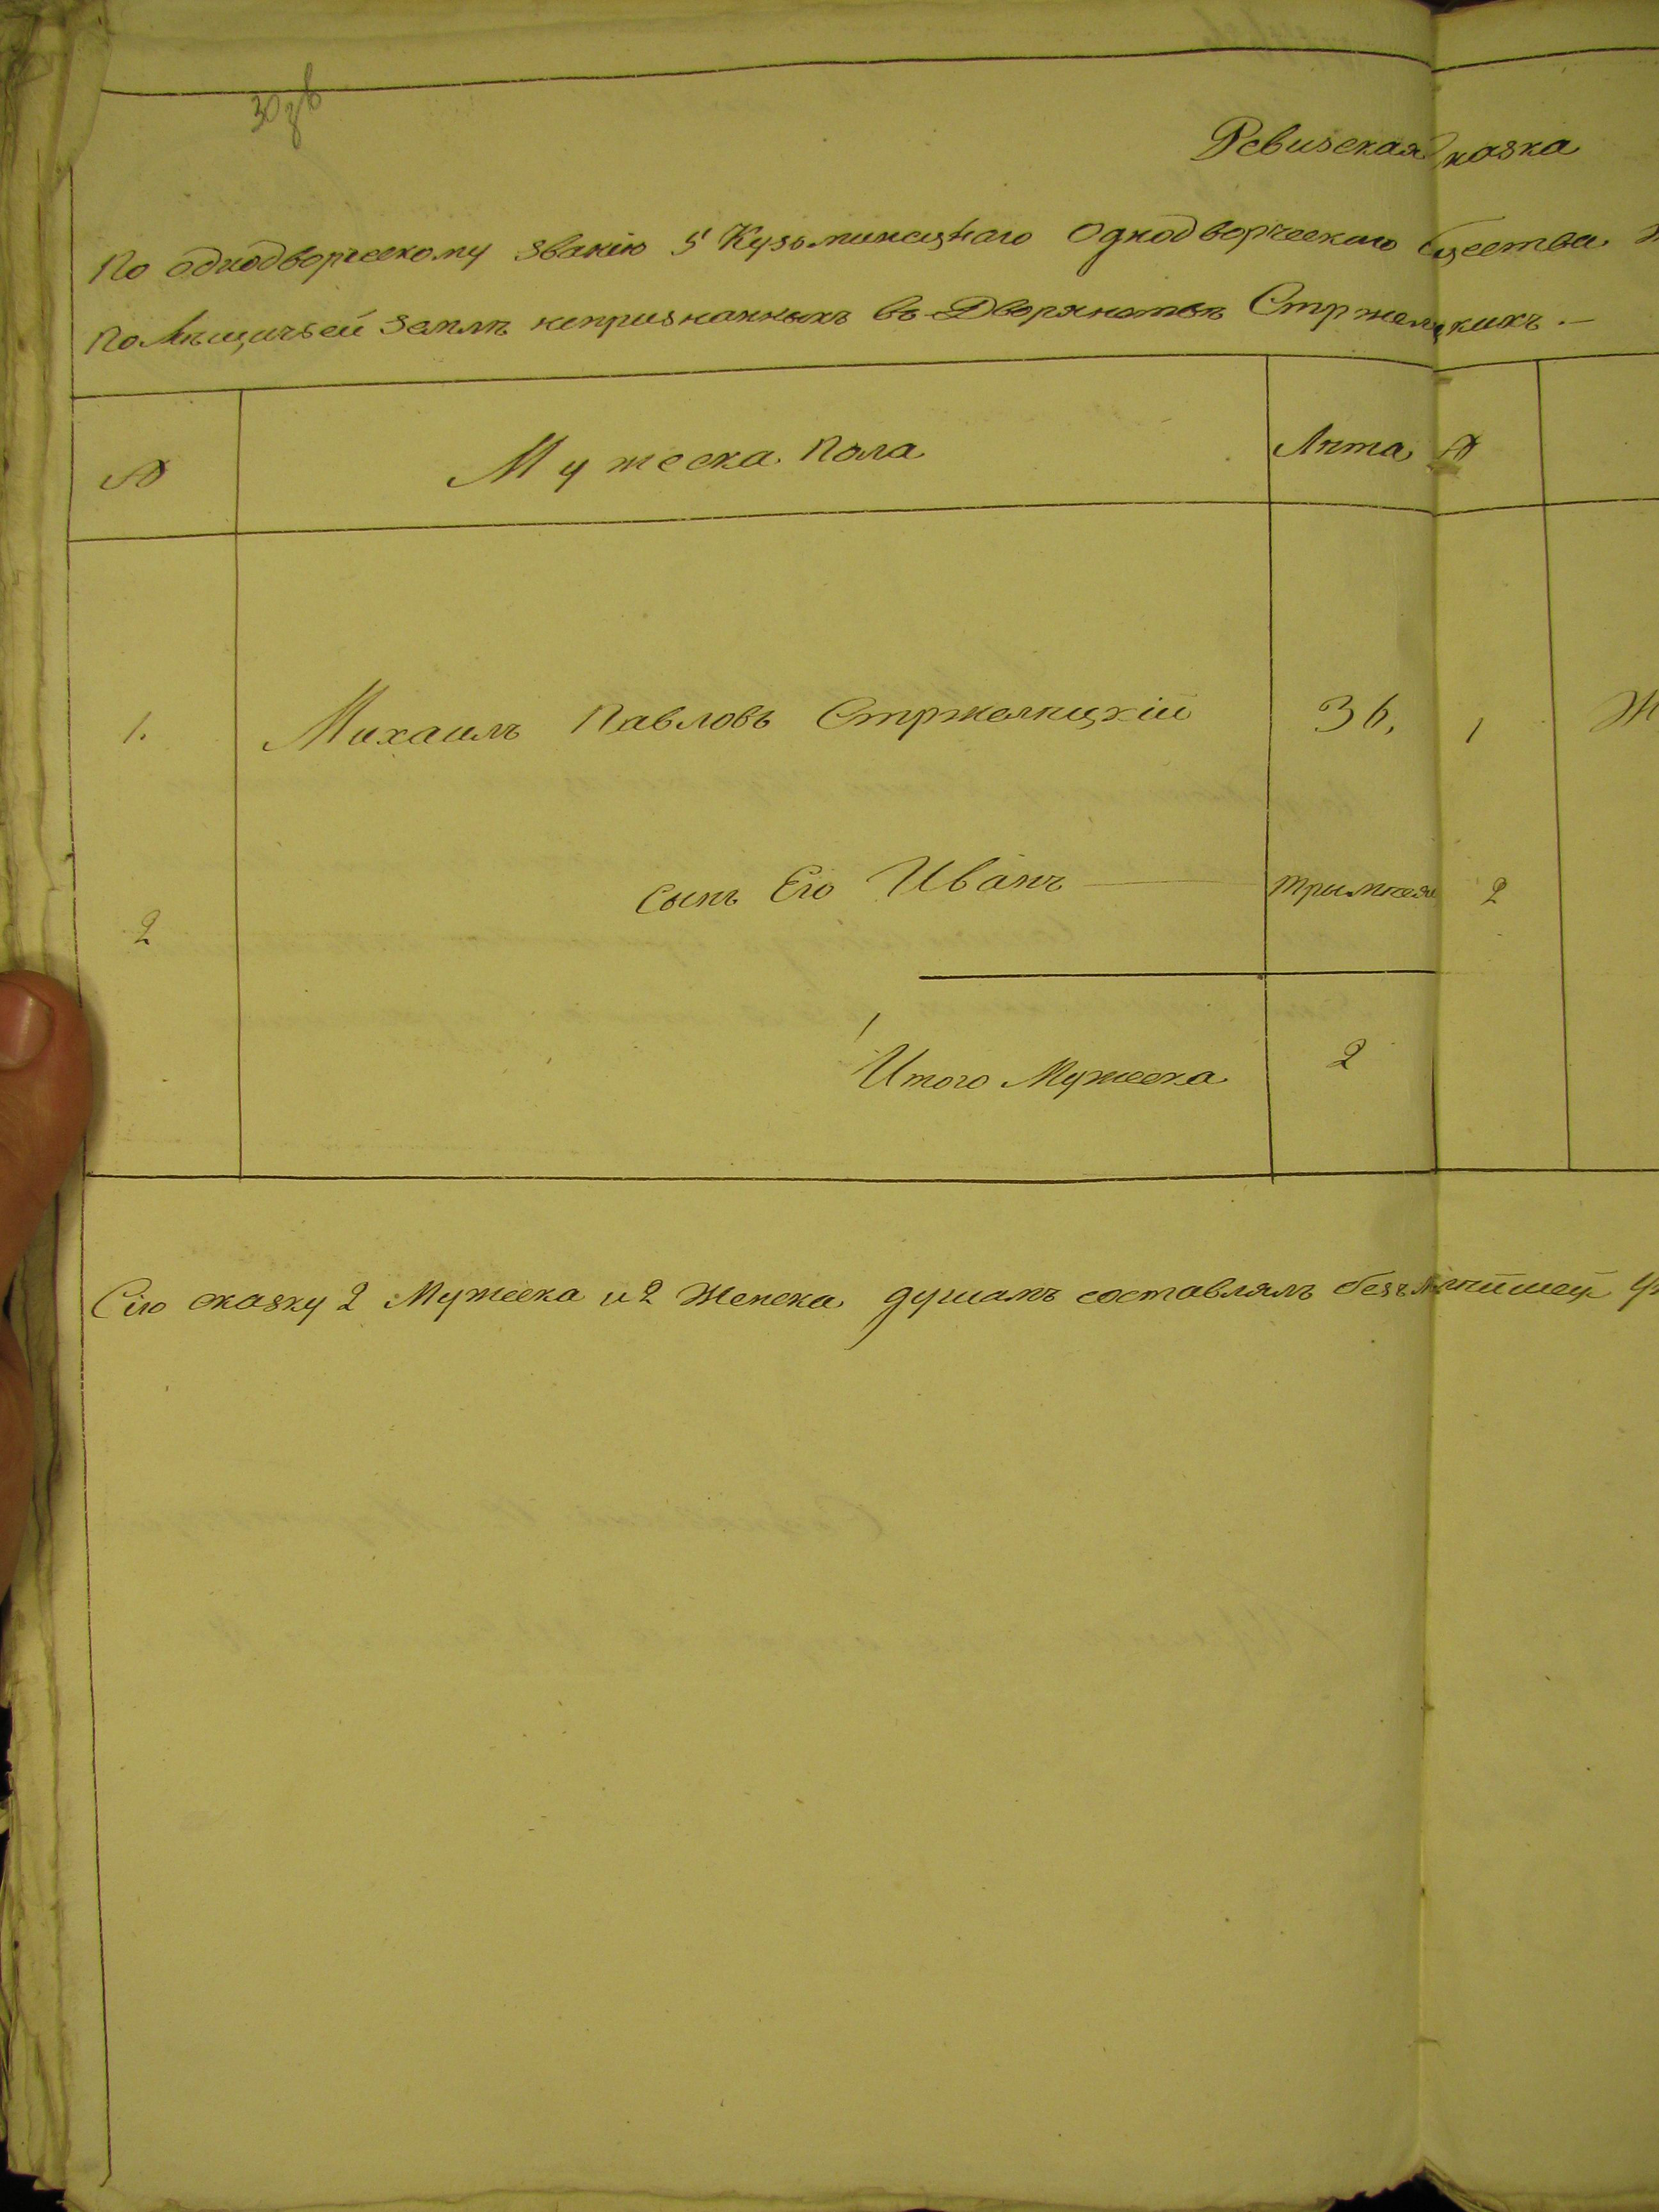 30
Ревизская казка
По однодворческому званію 5 Кузьминецкаго Однодворческаго
Помѣщичьей землѣ непризнанныхъ въ Дворянствѣ
№ Мужеска пола Лѣта №
1. Михаилъ Павловъ Стржелицкій 36, 1 Ж
2 сынъ Его Иванъ 2
Итого Мужеска 2
Сію сказку 2 Мужеска и 2 Женска душамъ составлялъ безъ